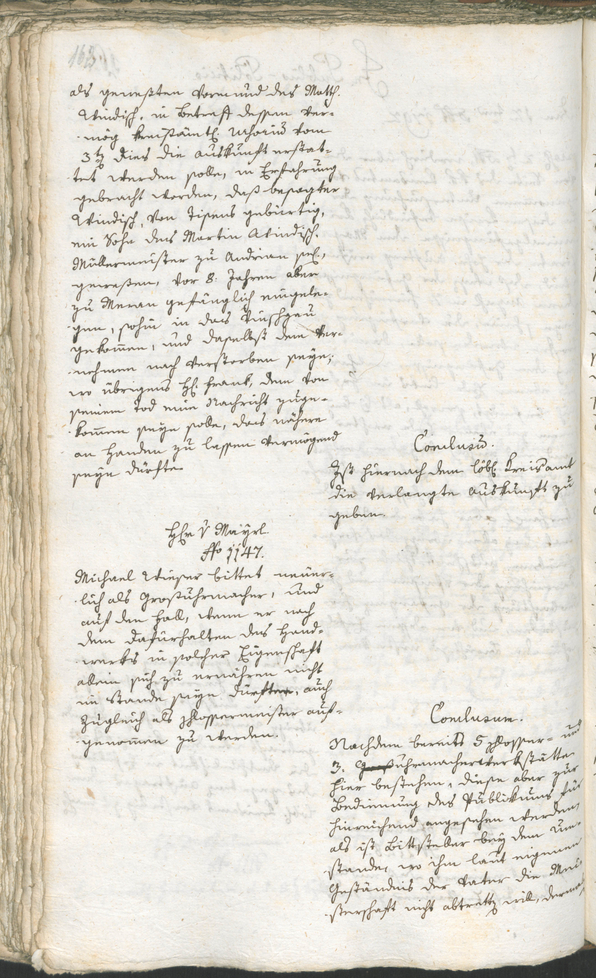 als gewesten Vormund des Math.
Windisch, in Betreff dessen ver-
mög kreisämtl.
3ten dies die Auskunft erstat-
tet werden solle, in Erfahrung
gebracht worden, daß besagter
Windisch, von Tisens gebürtig,
ein Sohn des Martin Windisch,
Müllermeister zu Andrian sel.
gewesen, vor 8 Jahren aber
zu Meran gefänglich eingele-
gen, sohin in das Vinschgau
gekommen, und daselbst dem Ver-
nehmen nach verstorben seye;
wo übrigens H. Frank, dem von
seinem Tod eine Nachricht zuge-
kommen seye solle, das nähere
an Handen zu lassen vermögend
seyn dürfte.
Conclusum.
Ist hiernach dem löbl. Kreisamt
die verlangte Auskunft zu
geben.
Hr. v. Mayrl
No 1147.
Michael Wieser bittet neuer-
lich als Großuhrmacher, und
auf den Fall, wenn er nach
dem Dafürhalten des Hand-
werks in solcher Eigenschaft
allein sich zu ernähren nicht
im Stande seyn dürfte, auch
zugleich als Schlossermeister auf-
genommen zu werden.
Conclusum.
Nachdem bereits 5 Schlosser- und
3 Großuhrmacherwerkstätte
hier bestehen, diese aber zur
Bedienung des Publikums für
hinreichend angesehen werden,
als ist Bittsteller bey dem Um-
stande, wo ihm laut eigenen
Geständnis der Vater die Mei-
sterschaft nicht abtretten will, derma